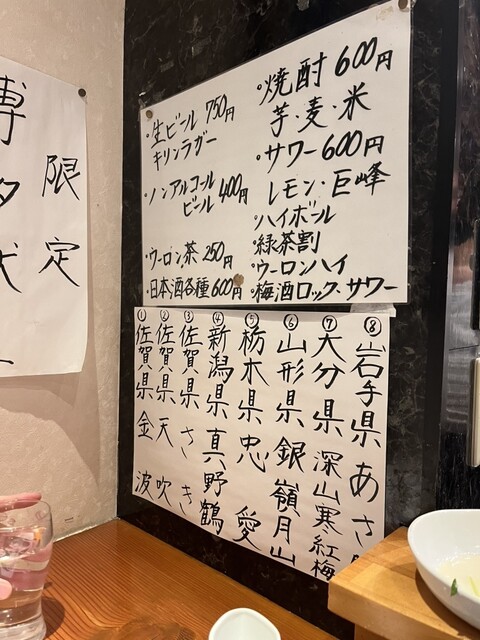 限定
・生ビール 750円
キリンラガー
・ノンアルコール
ビール 400円
・ウーロン茶 250円
・日本酒各種 600円
・焼酎 600円
芋・麦・米
・サワー 600円
レモン・巨峰
・ハイボール
・緑茶割
・ウーロンハイ
・梅酒ロック、サワー
① 佐賀県 金波
② 佐賀県 天吹
③ 佐賀県 さき
④ 新潟県 真野鶴
⑤ 栃木県 忠愛
⑥ 山形県 銀嶺月山
⑦ 大分県 深山寒紅梅
⑧ 岩手県 あさ